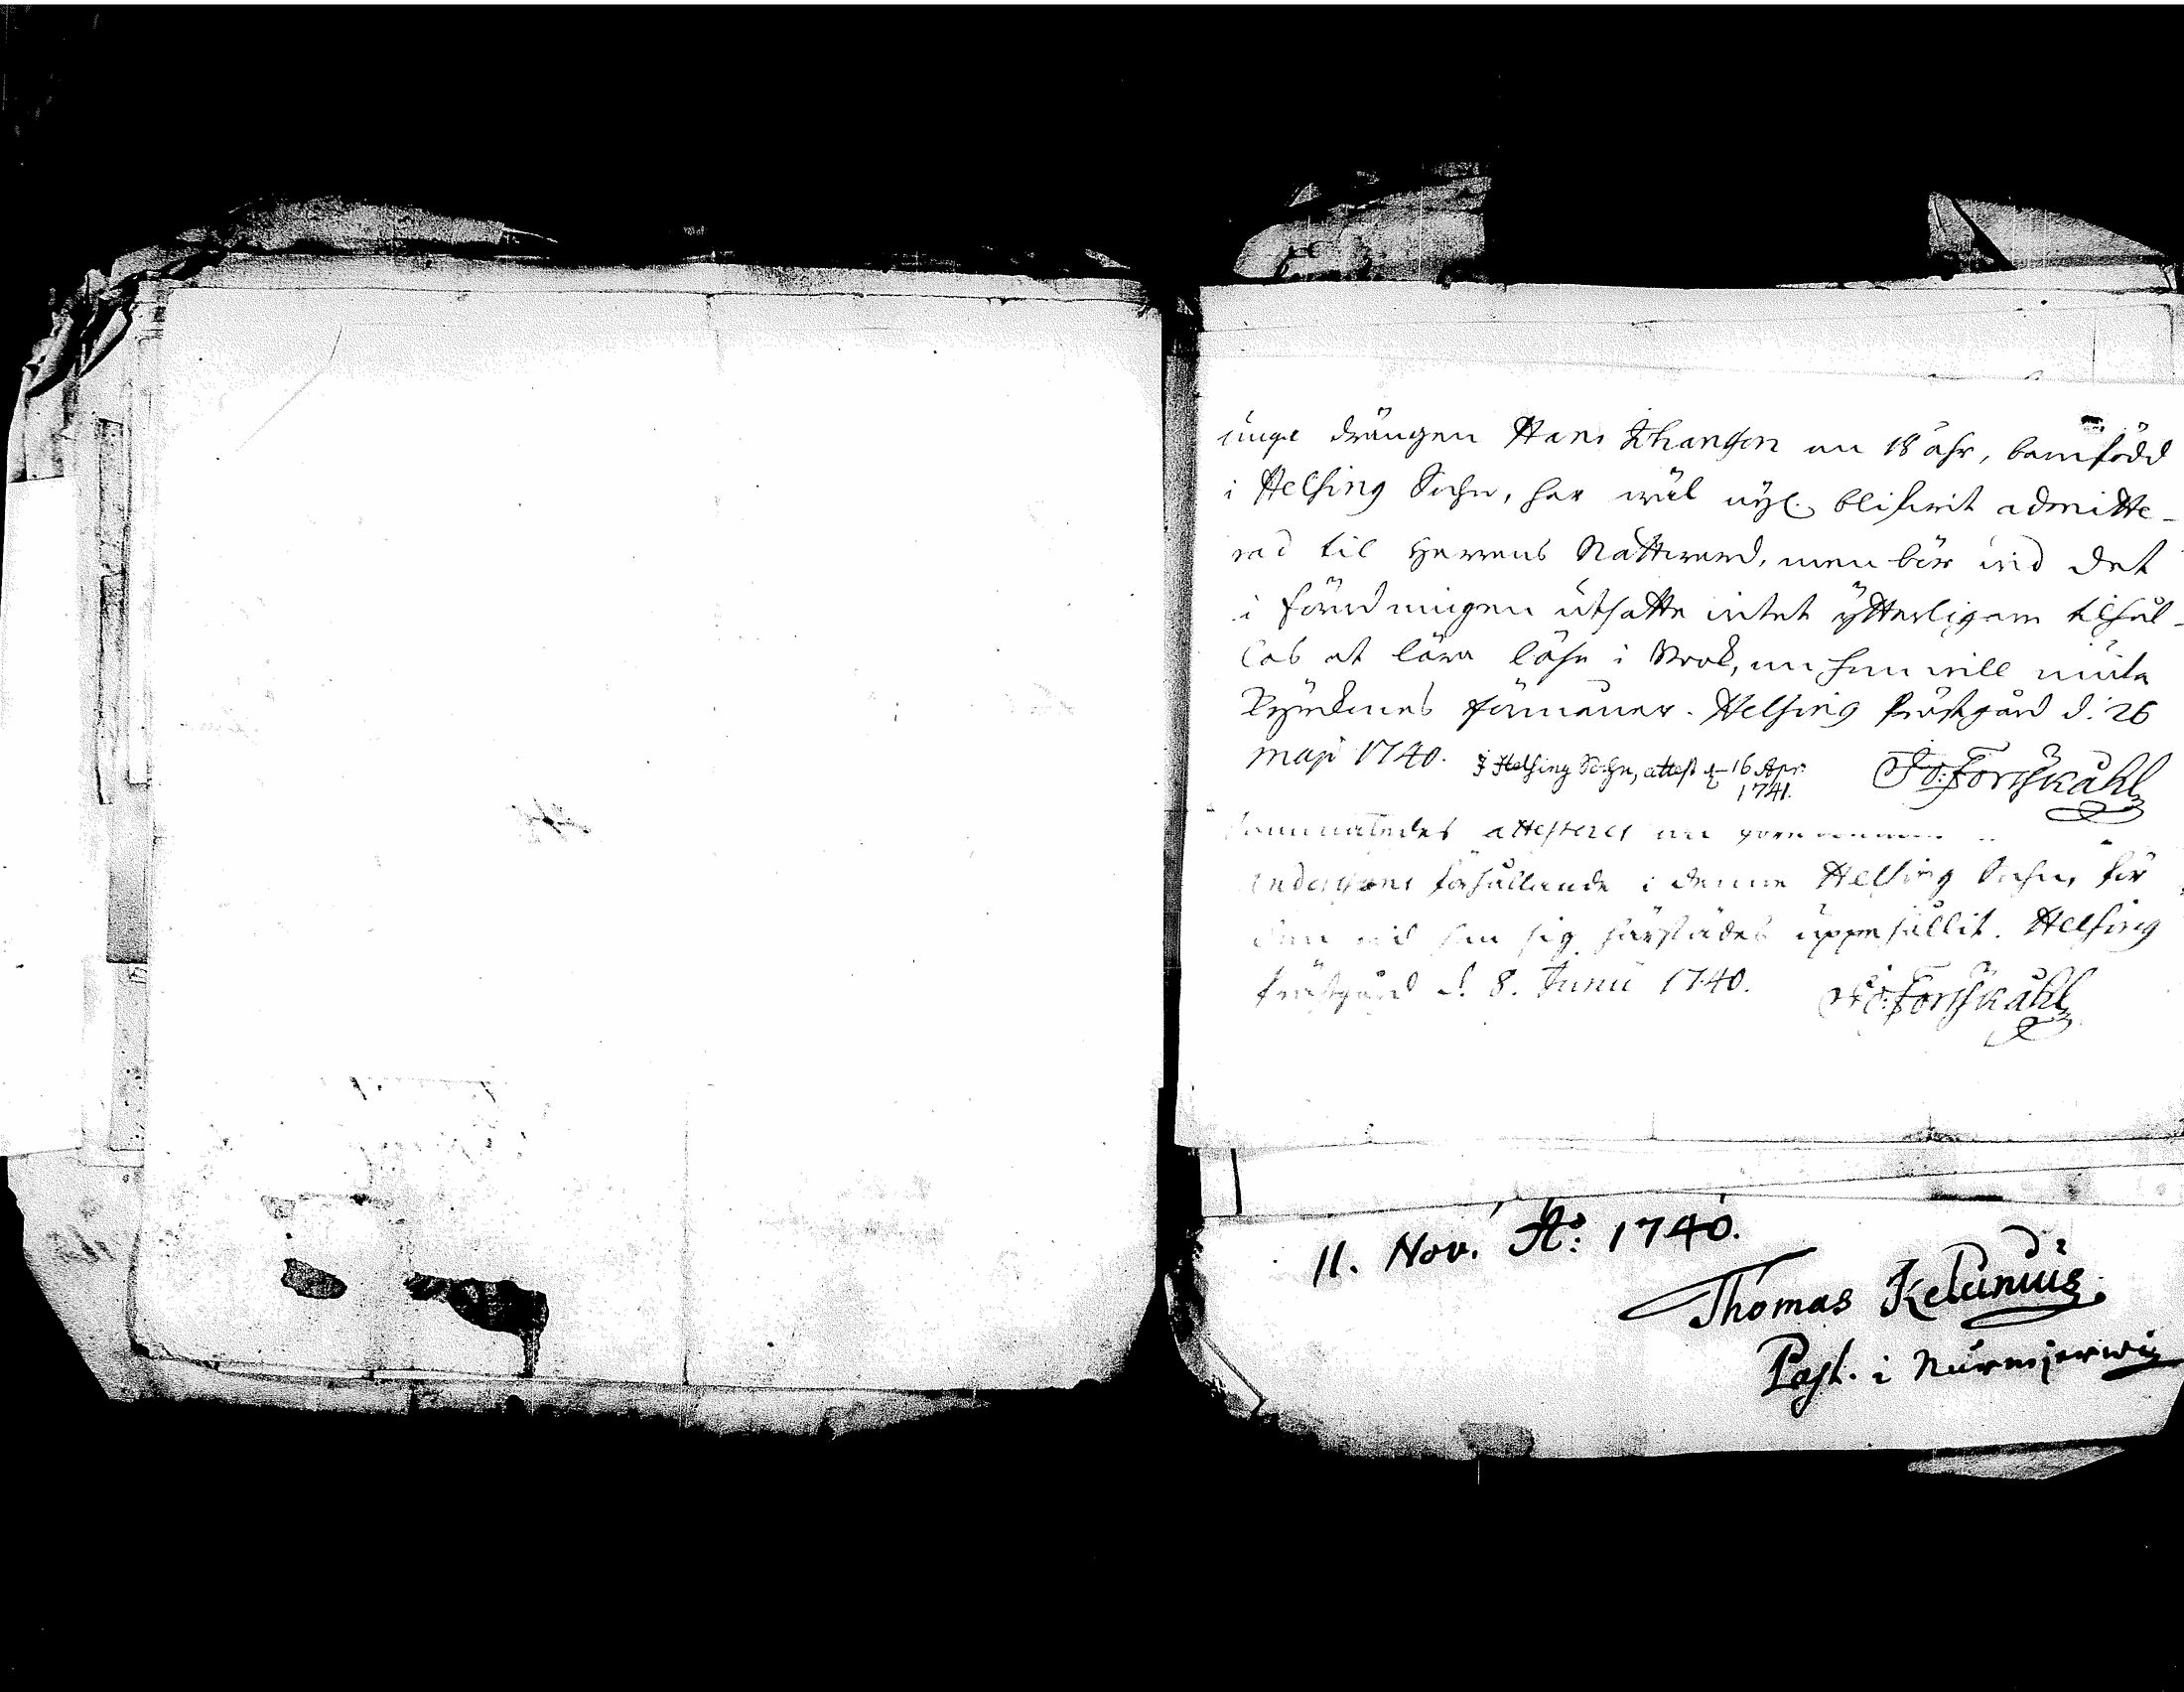 unge drängen Hans Johansson om 18 åhr, barnfödd
i Helsing Sochn, har wäl nyl. blifwit admitte-
rad til Herrens Nattward, men bör wid det
i förordningen utsatte witet ytterligare tilhål-
las at lära läsa i Book, om han will niuta
Kyrckones förmåner. Helsing Prästgård d. 26
Maji 1740. I Helsing Sochn, attest d. 16 Apr. 1741. Jo: Forsskåhl
sammaledes attesteres om
Anderssons förhållande i denne Helsing Sochn, för
den tid han sig härstädes uppehållit. Helsing
Prästgård d. 8. Junii 1740. Jo: Forsskåhl
11. Nov. Ao: 1740.
Thomas
Past. i Nurmijerwi